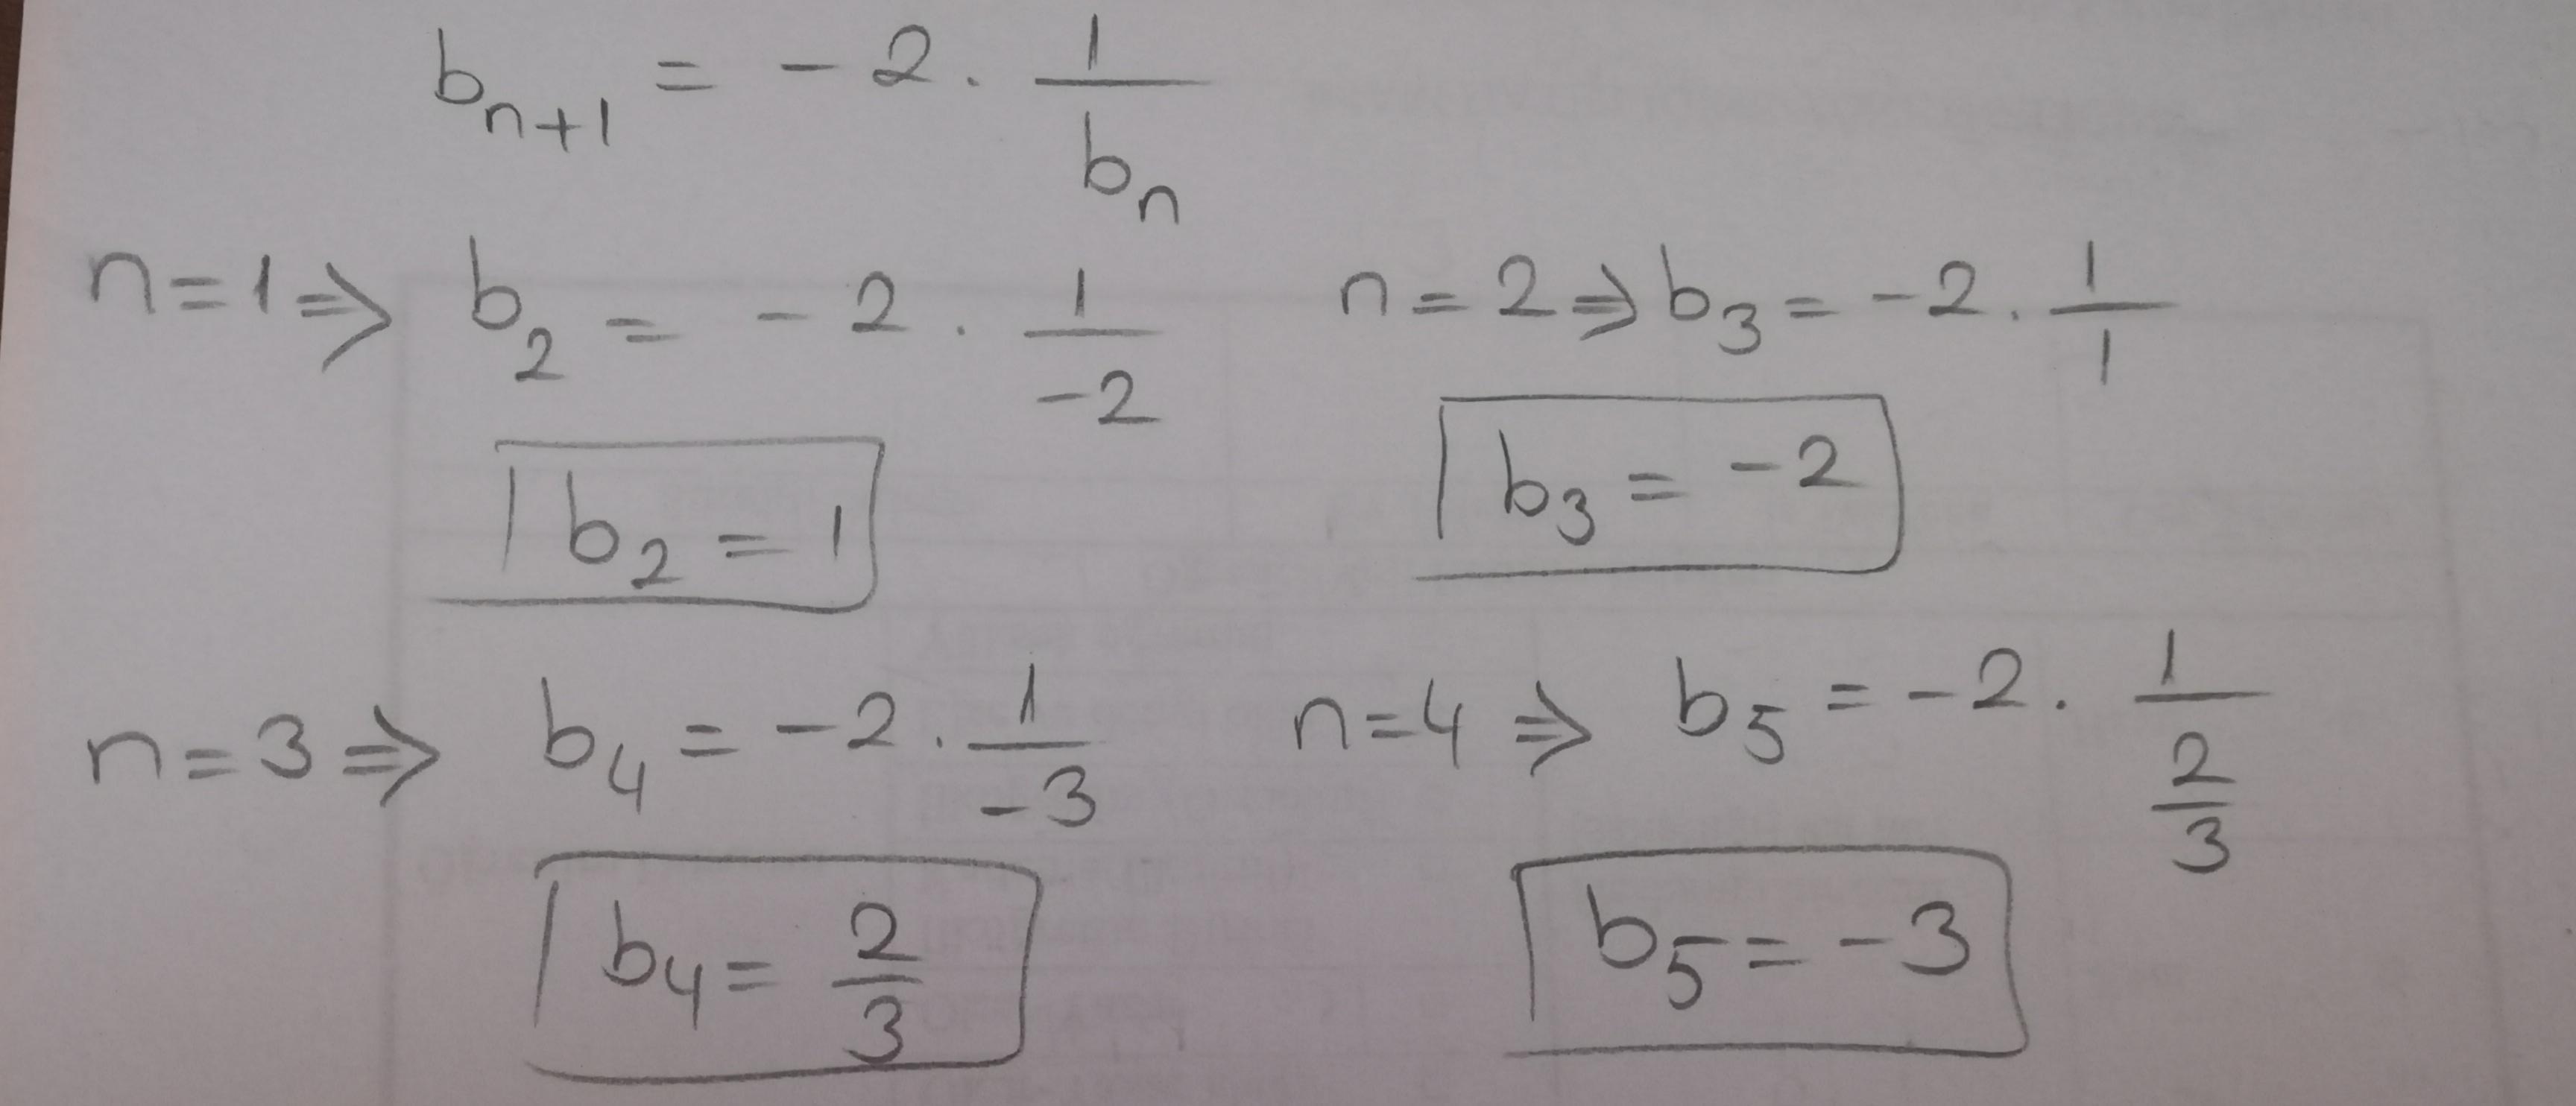 b_{n+1} = -2 . \frac{1}{b_n}
n=1 ⇒ b_2 = -2 . \frac{1}{-2}
b_2 = 1
n=2 ⇒ b_3 = -2 . \frac{1}{1}
b_3 = -2
n=3 ⇒ b_4 = -2 . \frac{1}{-3}
b_4 = \frac{2}{3}
n=4 ⇒ b_5 = -2 . \frac{1}{\frac{2}{3}}
b_5 = -3